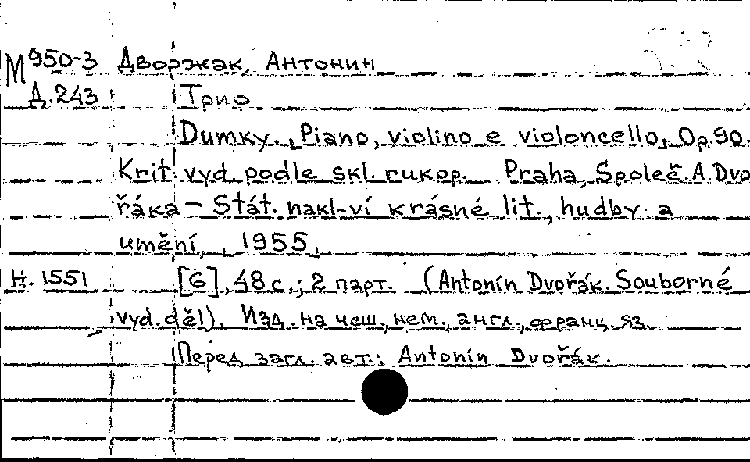 М 950-3 Дворжак, Антонин
Д.243 Трио
Dumky. Piano, violino e violoncello, Op.90.
Krit. vyd. podle skl. rukop. Praha, Společ. A. Dvo
řáka - Stát. nakl-ví krásné lit., hudby a
umění, 1955,
Н. 1551 [6], 48 с.; 2 парт. (Antonín Dvořák. Souborné
vyd. děl). Изд. на чеш., нем., англ., франц. яз.
Перед загл. авт.: Antonín Dvořák.